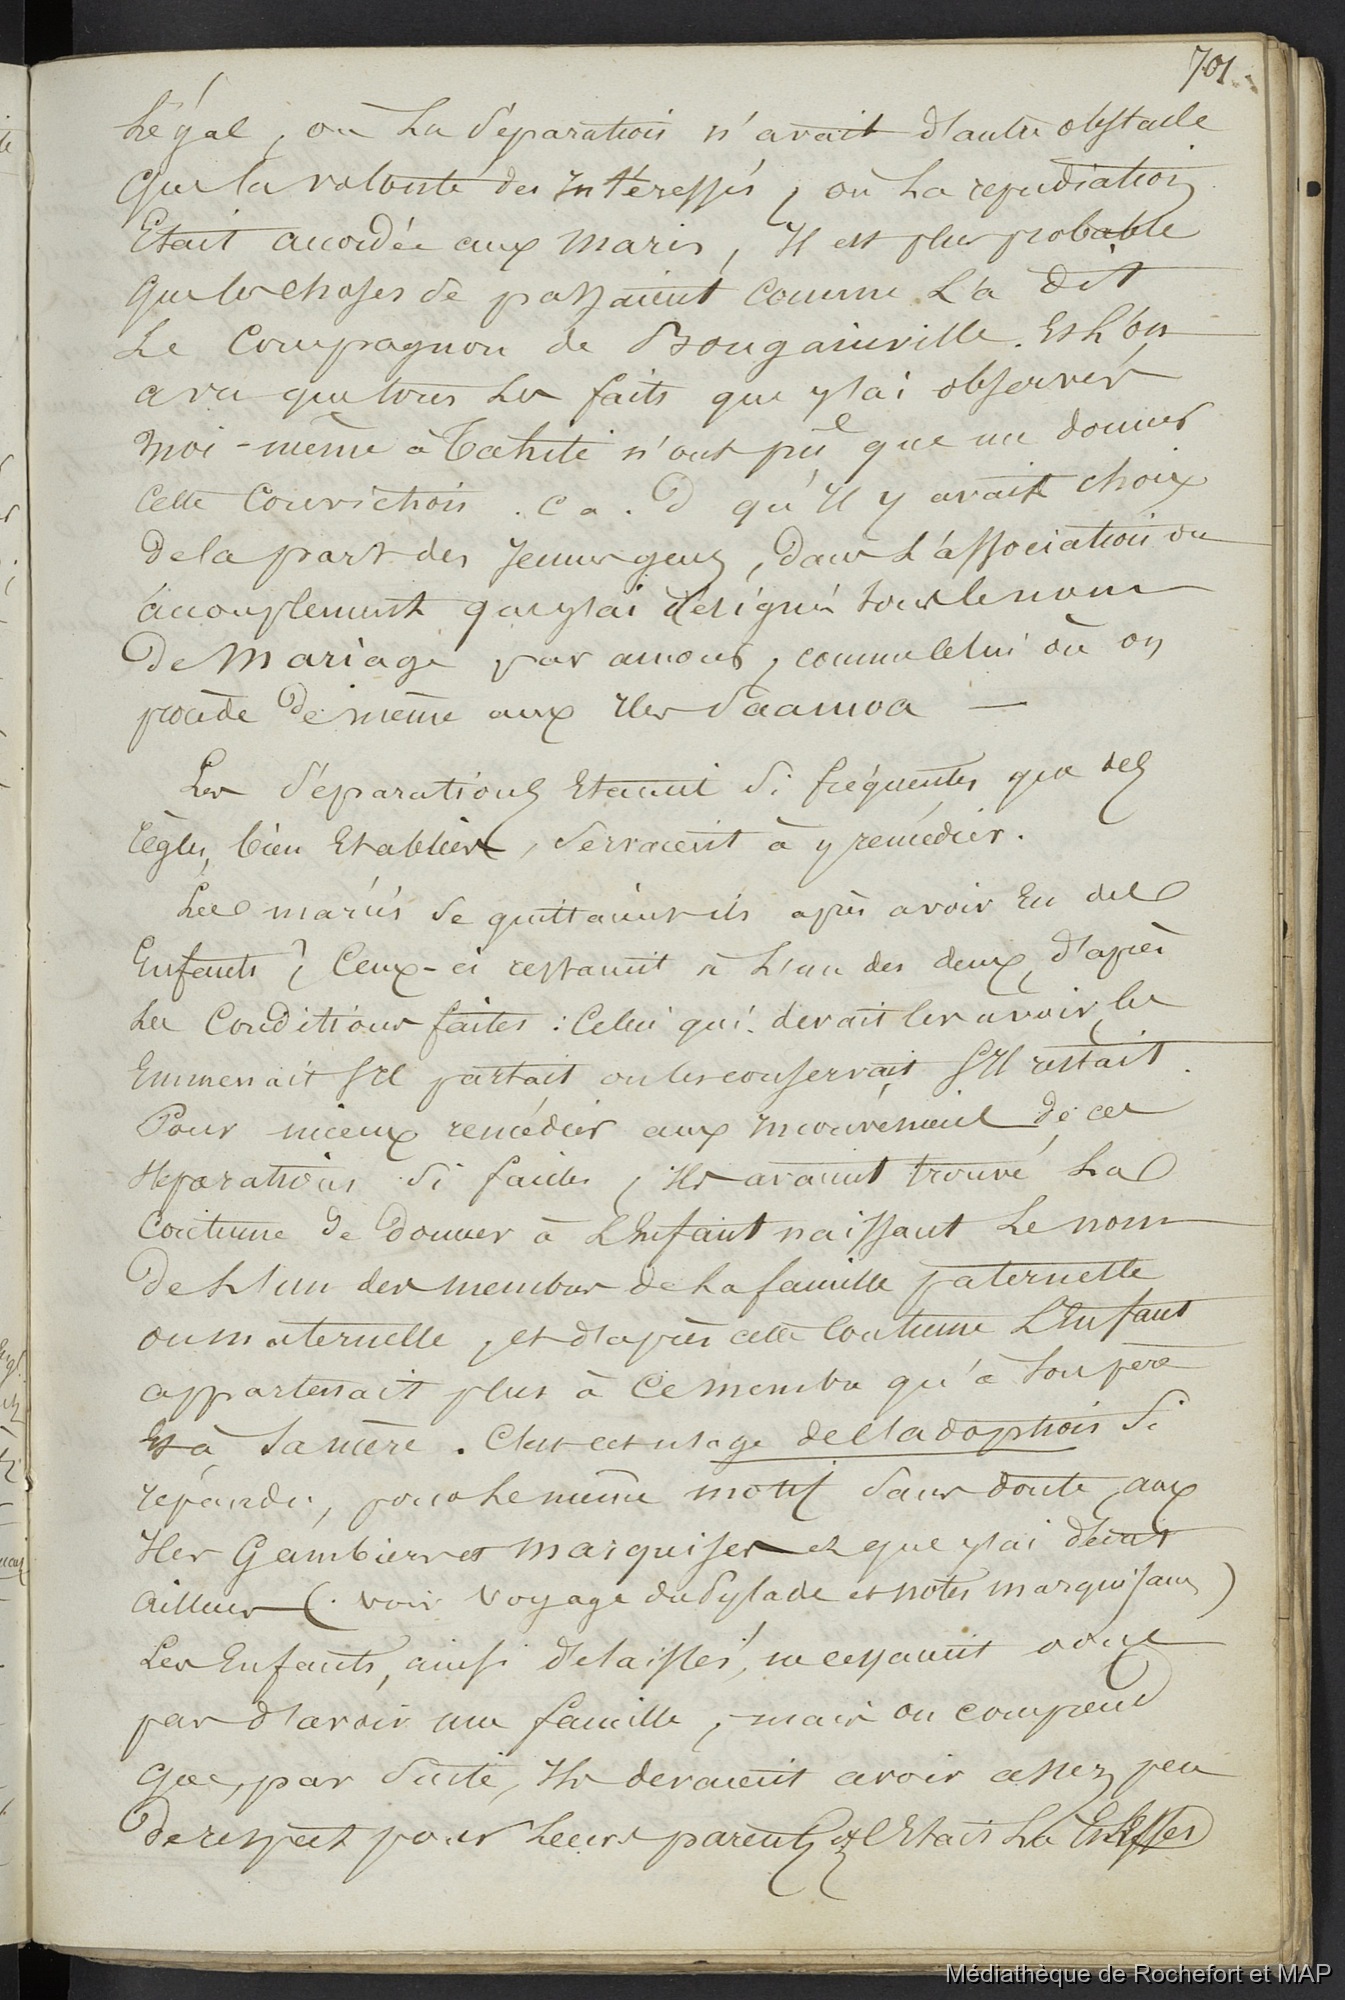 701.
Légal, où La Séparation n'avait d'autre obstacle
Que la volonté des Intéressés, où La repudiation
Etait accordée aux maris, Il est plus probable
Que les choses se passaient Comme L'a Dit
Le Compagnon de Bougainville. Et L'on
a vu que tous Les faits que j'ai observés
Moi-même à Tahiti n'ont pu que me donner
Cette Conviction . c a . D qu'Il y avait choix
De la part des Jeunes gens, Dans L'association ou
accouplement que j'ai désigné sous le nom
De Mariage par amour, comme celui où on
procède De même aux Iles Saamoa —
Les Séparations Etaient Si fréquentes que des
règles, bien Etablies, Servaient à y remédier.
Les mariés se quittaient-ils après avoir Eu des
Enfants ? Ceux-ci restaient à L'un des deux, d'après
Les Conditions faites : Celui qui devait les avoir, les
Emmenait s'Il partait ou les conservait s'Il restait.
Pour mieux remédier aux de ces
Séparations Si faciles, Ils avaient trouvé La
Coutume De Donner à L'Enfant naissant Le nom
De L'un des membres de La famille paternelle
ou maternelle, et d'après cette Coutume L'Enfant
appartenait plus à Ce membre qu'à Son père
Et à Sa mère. C'est cet usage de l'adoption Si
répandu, pour Le même motif Sans doute, aux
Iles Gambier et Marquises et que j'ai décrit
ailleurs (. voir Voyage du Pylade et notes marquisanes)
Les Enfants, ainsi délaissés, ne cessaient donc
pas d'avoir une famille, mais on comprend
Que, par Suite, Ils devaient avoir assez peu
De respect pour Leurs parents et C'Etait La
Médiathèque de Rochefort et MAP